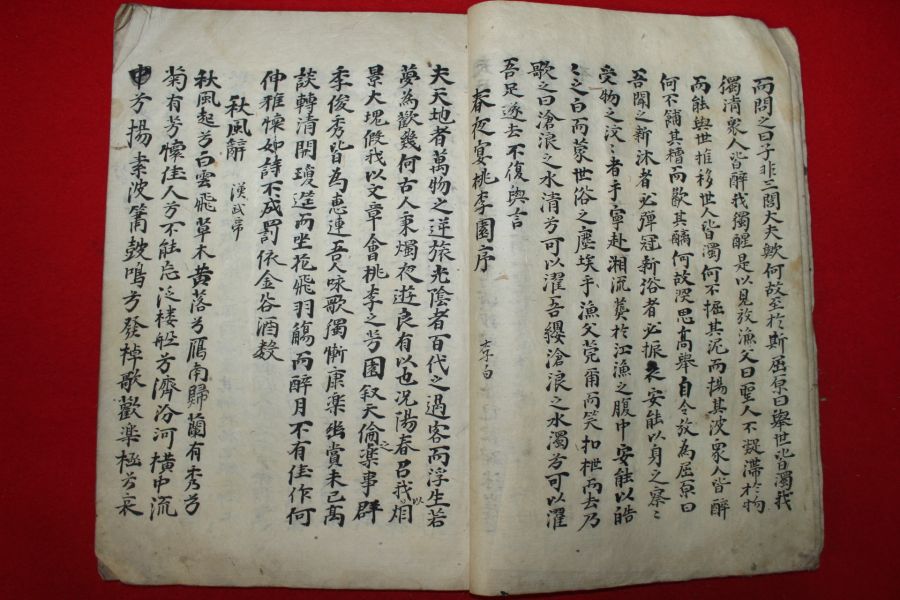 而問之曰子非三閭大夫歟何故至於斯屈原曰擧世皆濁我
獨清衆人皆醉我獨醒是以見放漁父曰聖人不凝滯於物
而能與世推移世人皆濁何不掘其泥而揚其波衆人皆醉
何不餔其糟而歠其醨何故深思高擧自令放為屈原曰
吾聞之新沐者必彈冠新浴者必振衣安能以身之察〻
受物之汶〻者乎寧赴湘流葬於江漁之腹中安能以皓
〻之白而蒙世俗之塵埃乎漁父莞爾而笑扣枻而去乃
歌之曰滄浪之水清兮可以濯吾纓滄浪之水濁兮可以濯
吾足遂去不復與言
春夜宴桃李園序 李白
夫天地者萬物之逆旅光陰者百代之過客而浮生若
夢為歡幾何古人秉燭夜遊良有以也況陽春召我以烟
景大塊假我以文章會桃李之芳園叙天倫之樂事群
季俊秀皆為惠連吾人咏歌獨慚康楽幽賞未已高
談轉清開瓊筵而坐花飛羽觴而醉月不有佳作何
伸雅懷如詩不成罰依金谷酒数
秋風辭 漢武帝
秋風起兮白雲飛草木黄落兮鴈南歸蘭有秀兮
菊有芳懷佳人兮不能忘泛楼舡兮濟汾河横中流
兮揚素波簫鼓鳴兮發棹歌歡楽極兮哀